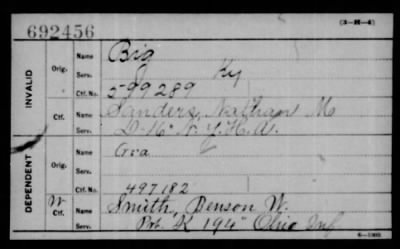 692456
(3-H-4)
INVALID
Orig.
Name
Big
Serv.
Ky
Ctf. No.
599289
Ctf.
Name
Sanders, Nathan M
Serv.
N.Y.H.A.
DEPENDENT
Orig.
Name
Serv.
Ctf. No.
497182
W
Ctf.
Name
Smith, Benson W.
Serv.
Pvt. K 194" Ohio Inf